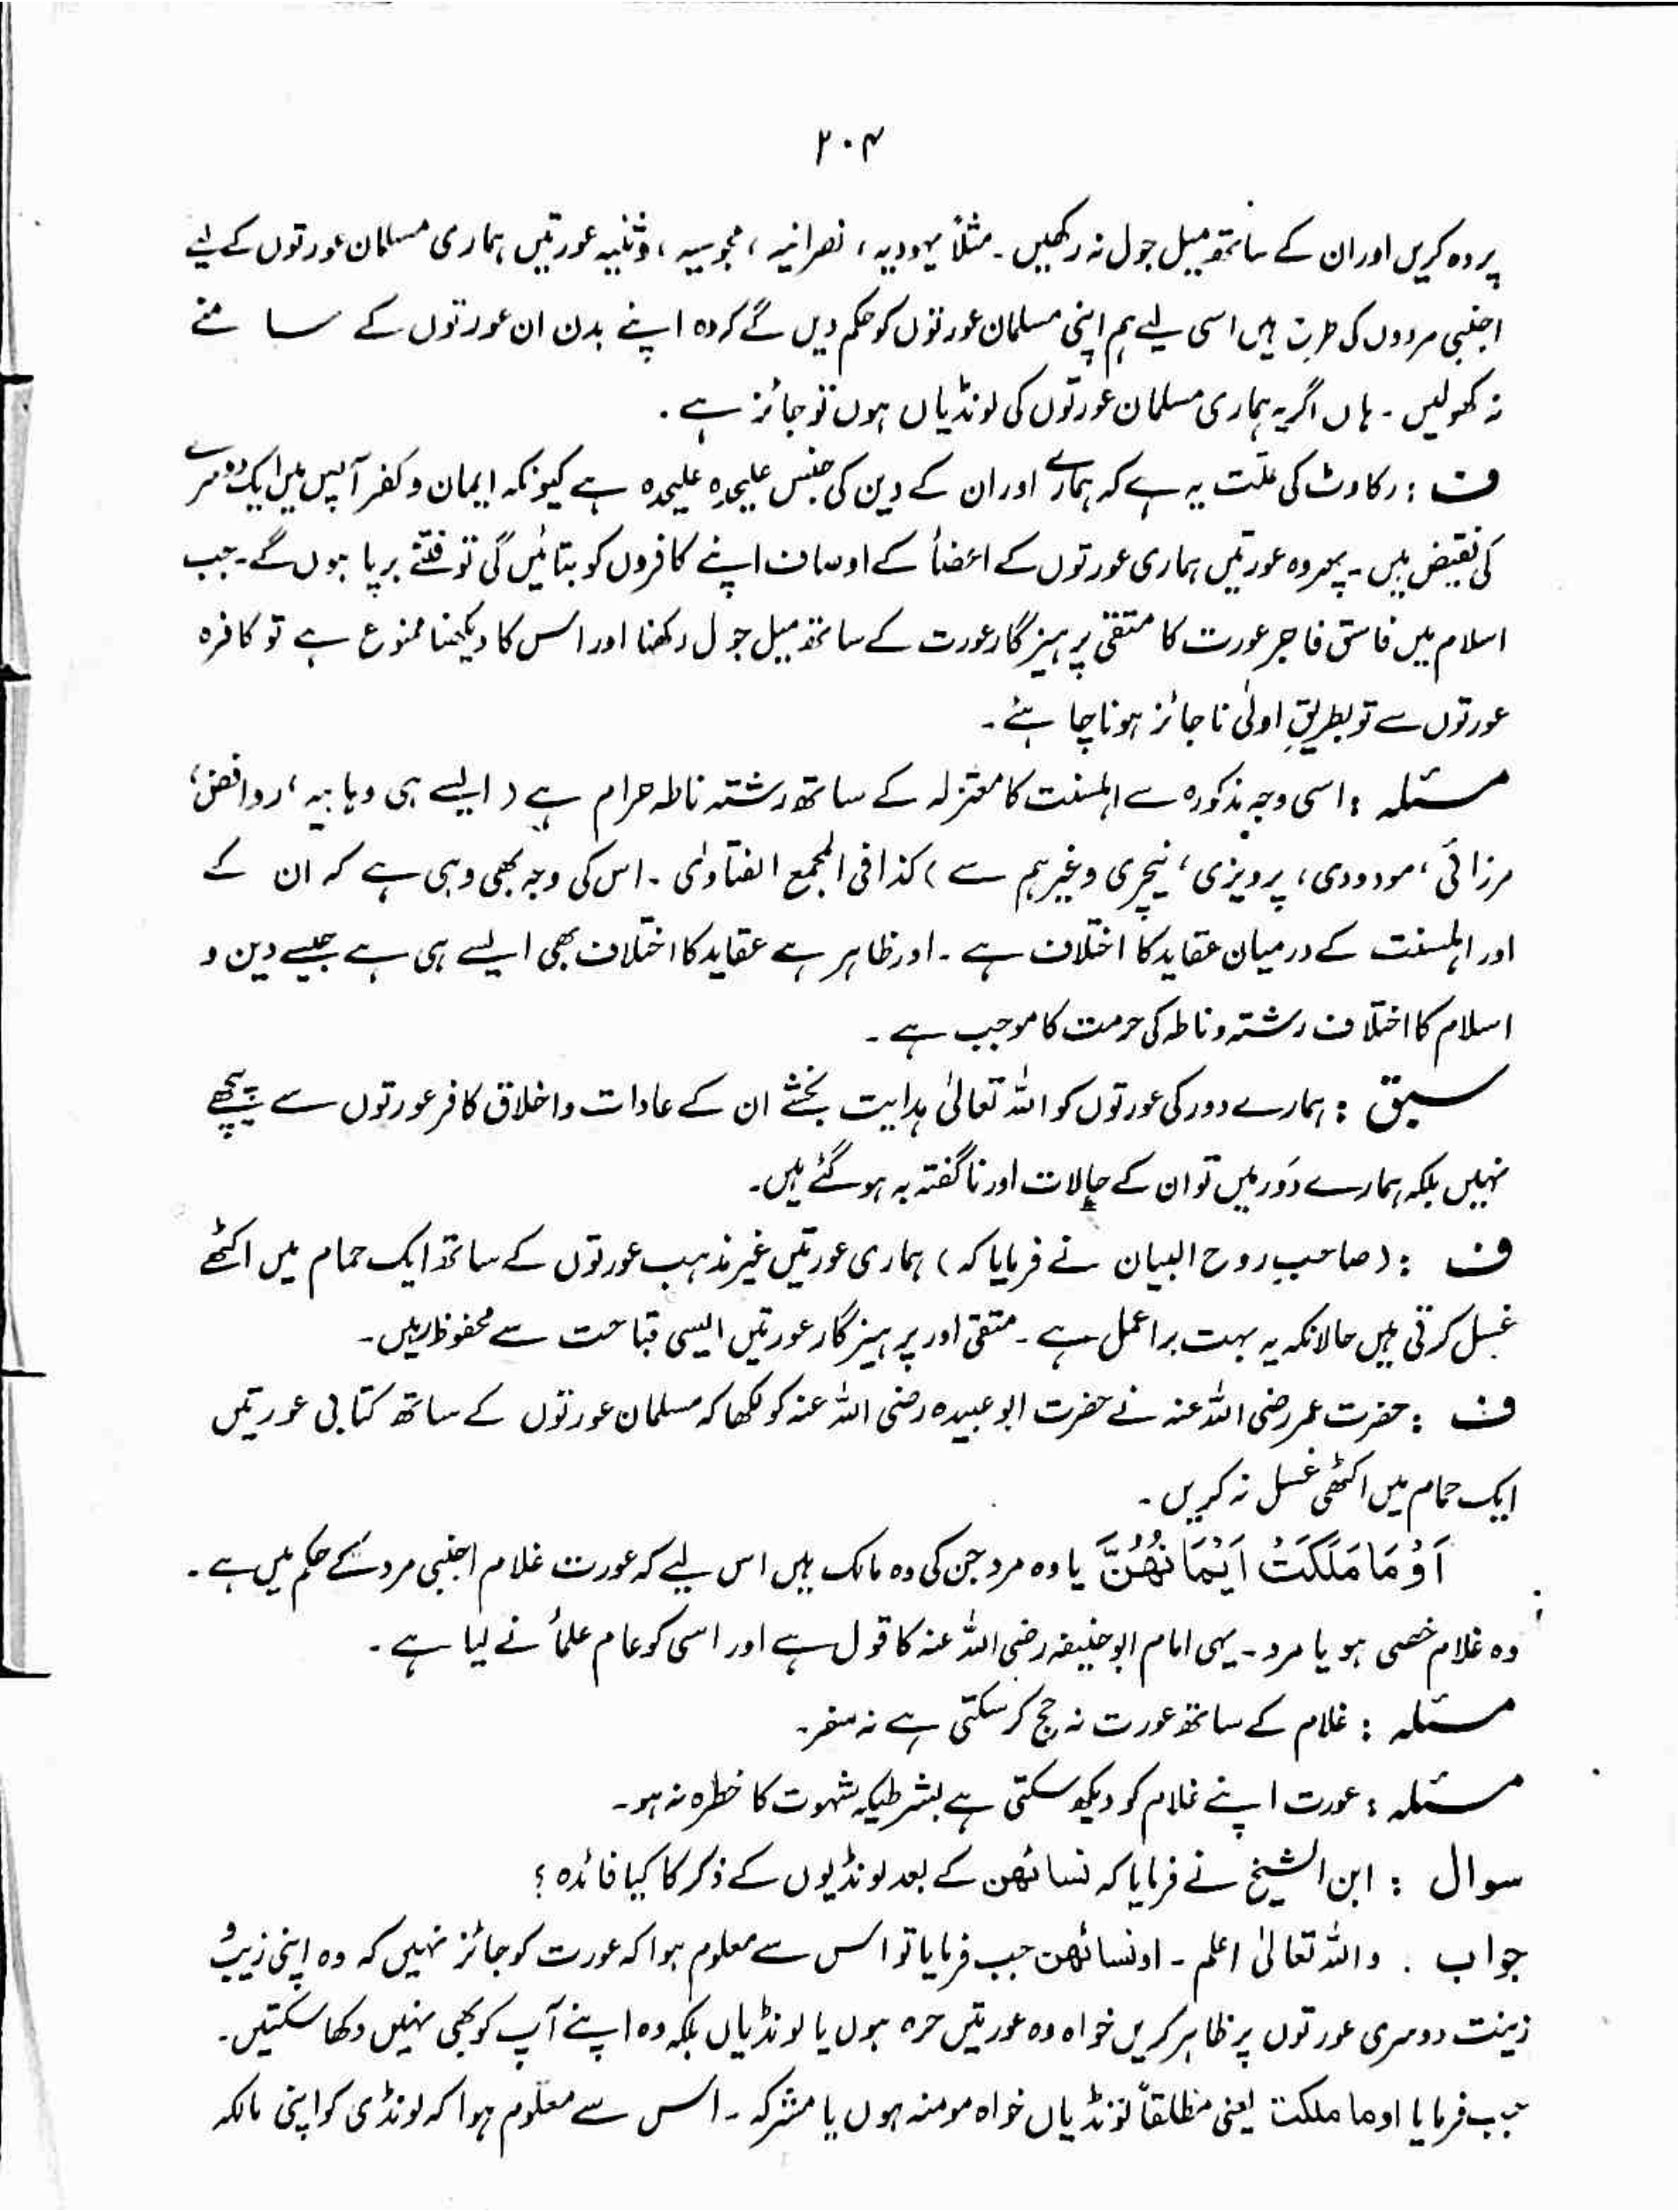 ۲۰۴
پردہ کریں اور ان کے ساتھ میل جول نہ رکھیں۔ مثلاً یہودیہ، نصرانیہ، مجوسیہ، وثنیہ عورتیں ہماری مسلمان عورتوں کے لیے
اجنبی مردوں کی طرح ہیں اسی لیے ہم اپنی مسلمان عورتوں کو حکم دیں گے کہ وہ اپنے بدن ان عورتوں کے سامنے
نہ کھولیں۔ ہاں اگر یہ ہماری مسلمان عورتوں کی لونڈیاں ہوں تو جائز ہے۔
ف : رکاوٹ کی علّت یہ ہے کہ ہمارے اور ان کے دین کی جنس علیحدہ علیحدہ ہے کیونکہ ایمان و کفر آپس میں ایک دوسرے
کی نقیض ہیں۔ پھر وہ عورتیں ہماری عورتوں کے اعضأ کے اوصاف اپنے کافروں کو بتائیں گی تو فتنے برپا ہوں گے۔ جب
اسلام میں فاسق فاجر عورت کا متقی پرہیزگار عورت کے ساتھ میل جول رکھنا اور اس کا دیکھنا ممنوع ہے تو کافرہ
عورتوں سے تو بطریقِ اولیٰ ناجائز ہونا چاہئے۔
مسئلہ : اسی وجہ مذکورہ سے اہلسنت کا معتزلہ کے ساتھ رشتہ ناطہ حرام ہے (ایسے ہی وہابیہ، روافض،
مرزائی، مودودی، پرویزی، نیچری وغیرہم سے) کذا فی المجمع الفتاویٰ۔ اس کی وجہ بھی وہی ہے کہ ان کے
اور اہلسنت کے درمیان عقاید کا اختلاف ہے۔ اور ظاہر ہے عقاید کا اختلاف بھی ایسے ہی ہے جیسے دین و
اسلام کا اختلاف رشتہ و ناطہ کی حرمت کا موجب ہے۔
سبق : ہمارے دور کی عورتوں کو اللہ تعالیٰ ہدایت بخشے ان کے عادات و اخلاق کافر عورتوں سے پیچھے
نہیں بلکہ ہمارے دَور میں تو ان کے حالات اور ناگفتہ بہ ہو گئے ہیں۔
ف : (صاحبِ روح البیان نے فرمایا کہ) ہماری عورتیں غیر مذہب عورتوں کے ساتھ ایک حمام میں اکٹھے
غسل کرتی ہیں حالانکہ یہ بہت برا عمل ہے۔ متقی اور پرہیزگار عورتیں ایسی قباحت سے محفوظ رہیں۔
ف : حضرت عمر رضی اللہ عنہ نے حضرت ابو عبیدہ رضی اللہ عنہ کو لکھا کہ مسلمان عورتوں کے ساتھ کتابی عورتیں
ایک حمام میں اکٹھی غسل نہ کریں۔
اَوْ مَا مَلَكَتْ اَيْمَانُهُنَّ یا وہ مرد جن کی وہ مالک ہیں اس لیے کہ عورت غلام اجنبی مرد کے حکم میں ہے۔
وہ غلام خصی ہو یا مرد۔ یہی امام ابو حنیفہ رضی اللہ عنہ کا قول ہے اور اسی کو عام علمأ نے لیا ہے۔
مسئلہ : غلام کے ساتھ عورت نہ حج کر سکتی ہے نہ سفر۔
مسئلہ : عورت اپنے غلام کو دیکھ سکتی ہے بشرطیکہ شہوت کا خطرہ نہ ہو۔
سوال : ابن الشیخ نے فرمایا کہ نسائھن کے بعد لونڈیوں کے ذکر کا کیا فائدہ؟
جواب . واللہ تعالیٰ اعلم۔ او نسائھن جب فرمایا تو اس سے معلوم ہوا کہ عورت کو جائز نہیں کہ وہ اپنی زیب و
زینت دوسری عورتوں پر ظاہر کریں خواہ وہ عورتیں حرہ ہوں یا لونڈیاں بلکہ وہ اپنے آپ کو بھی نہیں دکھا سکتیں۔
جب فرمایا او ما ملکت یعنی مطلقاً لونڈیاں خواہ مومنہ ہوں یا مشرکہ۔ اس سے معلوم ہوا کہ لونڈی کو اپنی مالکہ